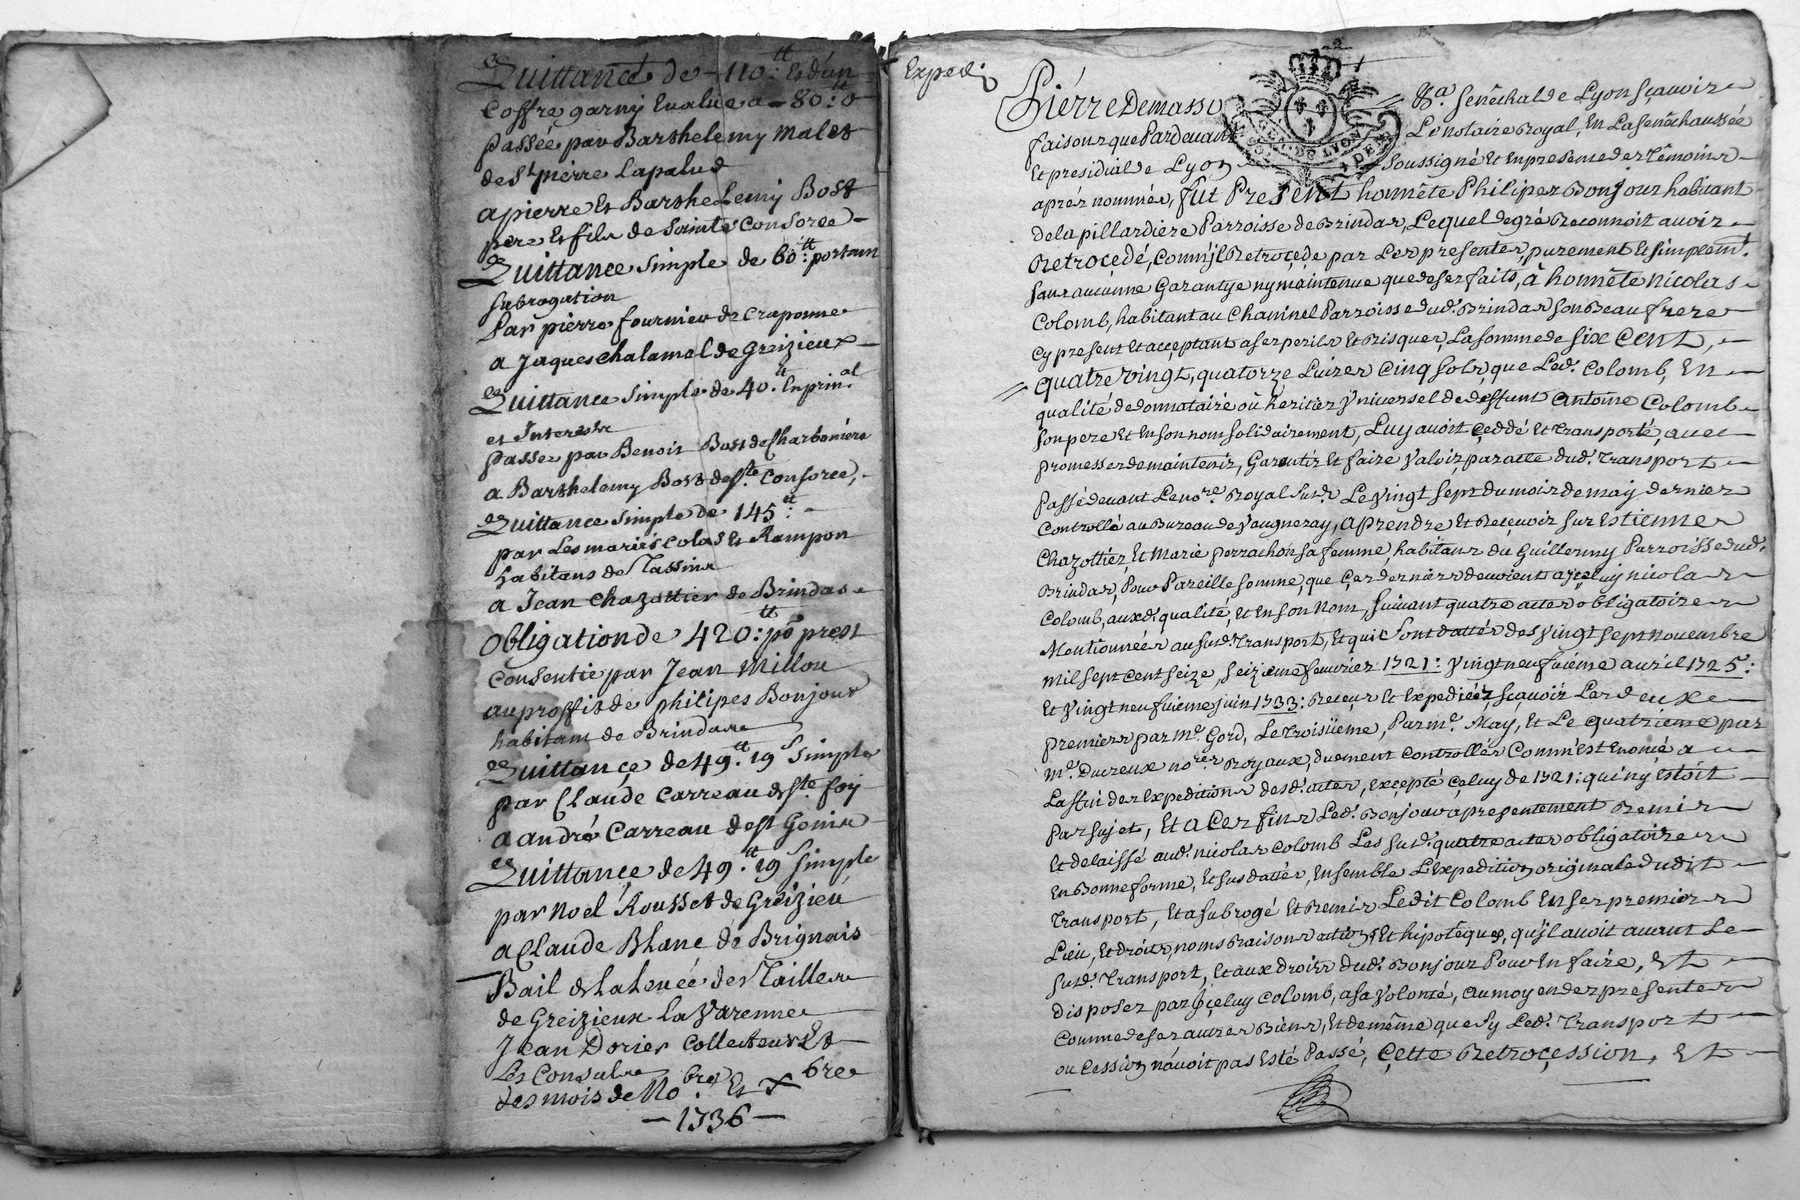 Quittance de 110.tt et d'un
Coffre garny Evalué a 80:0
passée par Barthelemy Malet
de St pierre Lapalud
a pierre et Barthelemy Bost
pere et fils de Sainte Consorce
Quittance simple de 60.tt portant
subrogation
Par pierre fournier de Craponne
a Jaques chalamel de Greizieux
Quittance simple de 40.tt En prin.al
et Interests
passée par Benoit Bost de Charboniere
a Barthelemy Bost de ste Consorce,
Quittance simple de 145.tt
par Les mariés Colas et Rampon
habitans de Tassin
a Jean Chazottier de Brindas
Obligation de 420:tt po prest
Consentie par Jean Millou
au proffit de philipes Bonjour
habitant de Brindas
Quittance de 49.tt 19s Simple
par Claude Carreau de ste foy
a andré Carreau de st Genis
Quittance de 49.tt 19s Simple
par Noel Rousset de Greizieu
a Claude Blanc de Brignais
Bail de la Levée des Tailles
de Greizieux la Varenne
Jean Dorier Collecteur Et
Les Consuls
des mois de No.bre Et Xbre
— 1736 —
Exped.
Pierre Demasso
Sa. Senechal de Lyon sçavoir
faisons que Pardevant
Le notaire Royal, En La Senéchaussée
Et presidial de Lyon
Soussigné Et En presence des Témoins
aprés nommés, fut Present honnête Philipes Bonjour habitant
de la pillardiere Parroisse de Brindas, Lequel de gré Reconnoit avoir
Retroçedé, Comm'jl Retroçede par Les presentes, purement Et simplemt.
sans aucunne Garantye ny maintenue que de ses faits, à honnête nicolas
Colomb, habitant au Chaninel Parroisse dud. Brindas son Beau frere
Cy present Et acceptant a ses perils Et Risques, La somme de six Cent,
quatre vingt, quatorze Livres Cinq sols, que Led. Colomb, En
qualité de donnataire où heritier Vniversel de deffunt antoine Colomb
son pere Et En son nom solidairement, Luy avoit Çeddé Et transporté, avec
promesses de maintenir, Garantir Et faire Valoir par acte dud. Transport
Passé devant Le no.re Royal sus.d Le Vingt sept du mois de may dernier
Controllé au Bureau de Vaugneray, a prendre Et Recevoir sur Estienne
Chazottier, Et Marie perrachon sa femme, habitans du Guillermy Parroisse dud.
Brindas, Pour Pareille somme, que Çes derniers devoient a jçeluy nicolas
Colomb, auxd. qualité, Et En son Nom, suivant quatre actes obligatoires
Mentionnées au susd. Transport, Et qui sont dattés des Vingt sept novembre
mil sept Cent seize, seizieme fevrier 1721: Vingt neufvieme avril 1725:
Et Vingt neufvieme juin 1733: Reçeus Et Expediées, sçavoir Les deux
premiers par me. Gord, Le Troisieme, Par me. May, Et Le quatrieme par
me. Ducreux no.res Royaux, duement Controllés Comm'Est Enoncé a
La fin des Expeditions desd. actes, Excepté Çeluy de 1721: qui n'y Estoit
Par sujet, Et a Ces fins Led. Bonjour a presentement Remis
Et delaissé aud. nicolas Colomb Les susd. quatre actes obligatoires
En Bonne forme, Et susdattés, Ensemble L'Expedition originale dudit
Transport, Et a subrogé Et Remis Ledit Colomb En ses premiers
Lieu, Et droits, noms Raisons actions Et hipotêques, qu'jl avoit avant Le
susd. Transport, Et aux droits dud. Bonjour Pour En faire, Et
disposer par jçeluy Colomb, a sa Volonté, au moyen des presentes
Comme de ses autres Biens, Et de même que sy Led. Transport
ou Cession n'avoit pas Esté Passé, Çette Retroçession, Et